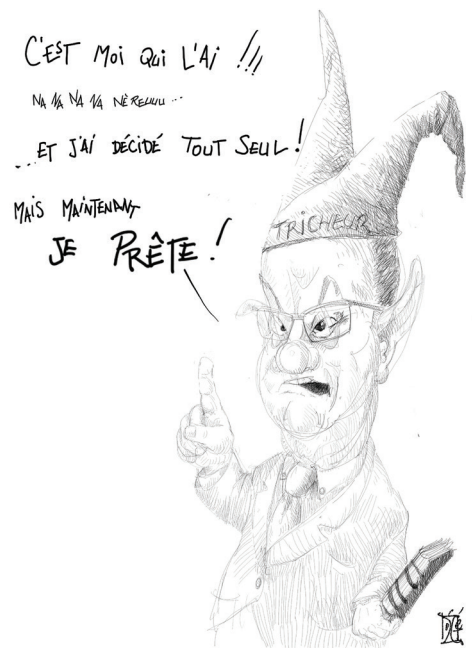 C'EST MOI QUI L'AI !!!
NA NA NA NA NÈREUUU...
...ET J'AI DÉCIDÉ TOUT SEUL!
MAIS MAINTENANT
JE PRÊTE!
TRICHEUR